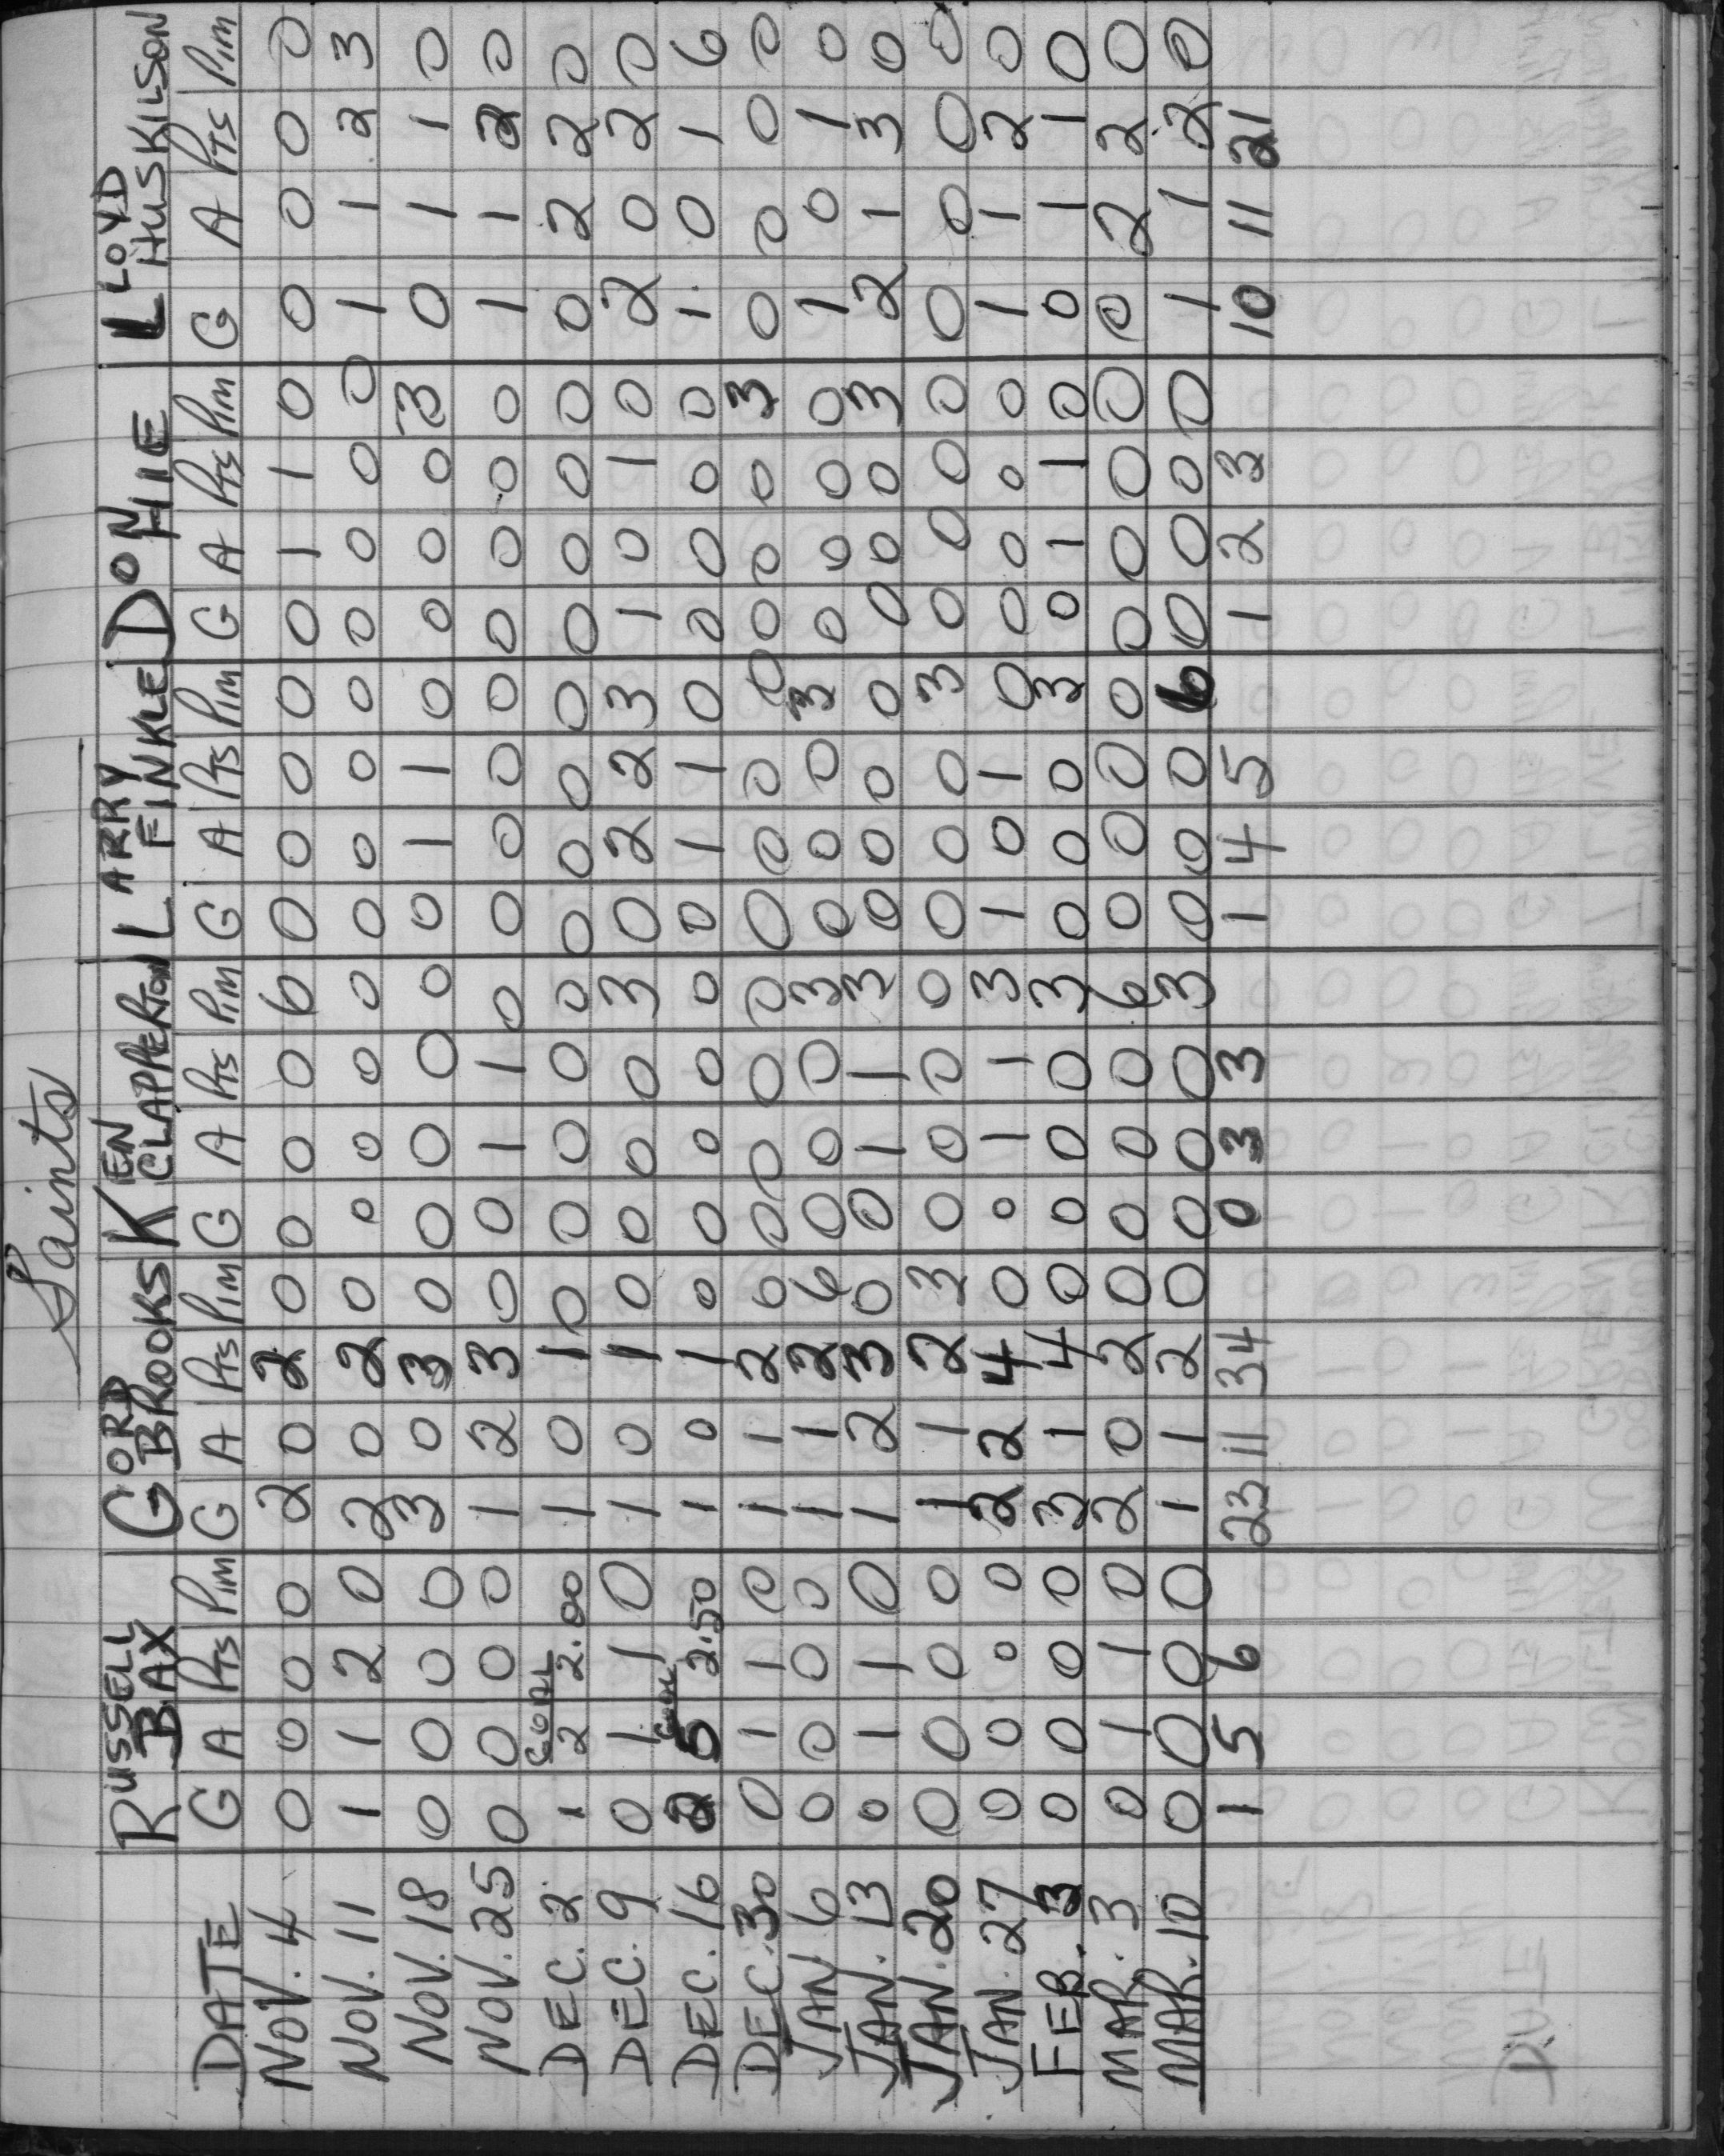 Saints
RUSSELL BAX GORD BROOKS KEN CLAPPERTON LARRY FINKLE DON HIE LLOYD HUSKILSON
DATE G A Pts Pim G A Pts Pim G A Pts Pim G A Pts Pim G A Pts Pim G A Pts Pim
NOV. 4 0 0 0 0 2 0 2 0 0 0 0 6 0 0 0 0 0 1 1 0 0 0 0 0
NOV. 11 1 1 2 0 2 0 2 0 0 0 0 0 0 0 0 0 0 0 0 0 1 1 2 3
NOV. 18 0 0 0 0 3 0 3 0 0 0 0 0 0 1 1 0 0 0 0 3 0 1 1 0
NOV. 25 0 0 0 0 1 2 3 0 0 1 1 0 0 0 0 0 0 0 0 0 1 1 2 0
DEC. 2 1 2 GOAL 2.00 1 0 1 0 0 0 0 0 0 0 0 0 0 0 0 0 0 2 2 0
DEC. 9 0 1 1 0 1 0 1 0 0 0 0 3 0 2 2 3 1 0 1 0 2 0 2 0
DEC. 16 2 5 GOAL 2.50 1 0 1 0 0 0 0 0 0 1 1 0 0 0 0 0 1 0 1 6
DEC. 30 0 1 1 0 1 1 2 0 0 0 0 0 0 0 0 0 0 0 0 3 0 0 0 0
JAN. 6 0 0 0 0 1 1 2 6 0 0 0 3 0 0 0 3 0 0 0 0 1 0 1 0
JAN. 13 0 1 1 0 1 2 3 0 0 1 1 3 0 0 0 0 0 0 0 3 2 1 3 0
JAN. 20 0 0 0 0 1 1 2 3 0 0 0 0 0 0 0 3 0 0 0 0 0 0 0 0
JAN. 27 0 0 0 0 2 2 4 0 0 1 1 3 1 0 1 0 0 0 0 0 1 1 2 0
FEB. 3 0 0 0 0 3 1 4 0 0 0 0 3 0 0 0 3 0 1 1 0 0 1 1 0
MAR. 3 0 1 1 0 2 0 2 0 0 0 0 6 0 0 0 0 0 0 0 0 0 2 2 0
MAR. 10 0 0 0 0 1 1 2 0 0 0 0 3 0 0 0 6 0 0 0 0 1 1 2 0
1 5 6 23 11 34 0 3 3 1 4 5 1 2 3 10 11 21